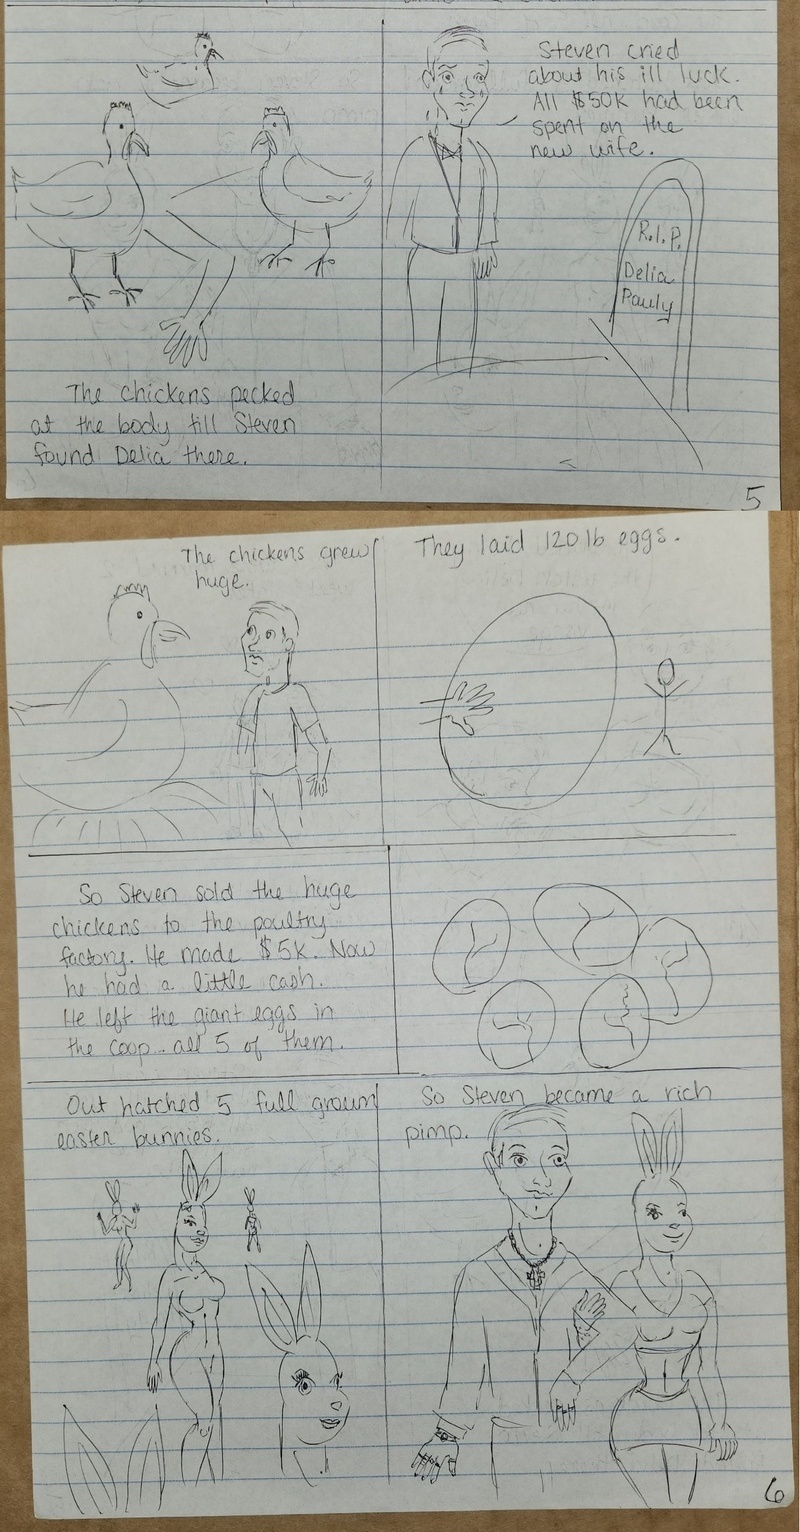 The chickens pecked
at the body till Steven
found Delia there.
Steven cried
about his ill luck.
All $50K had been
spent on the
new wife.
R.I.P.
Delia
Pauly
5
The chickens grew
huge.
They laid 120 lb eggs.
So Steven sold the huge
chickens to the poultry
factory. He made $5K. Now
he had a little cash.
He left the giant eggs in
the coop.. all 5 of them.
Out hatched 5 full grown
easter bunnies.
So Steven became a rich
pimp.
6